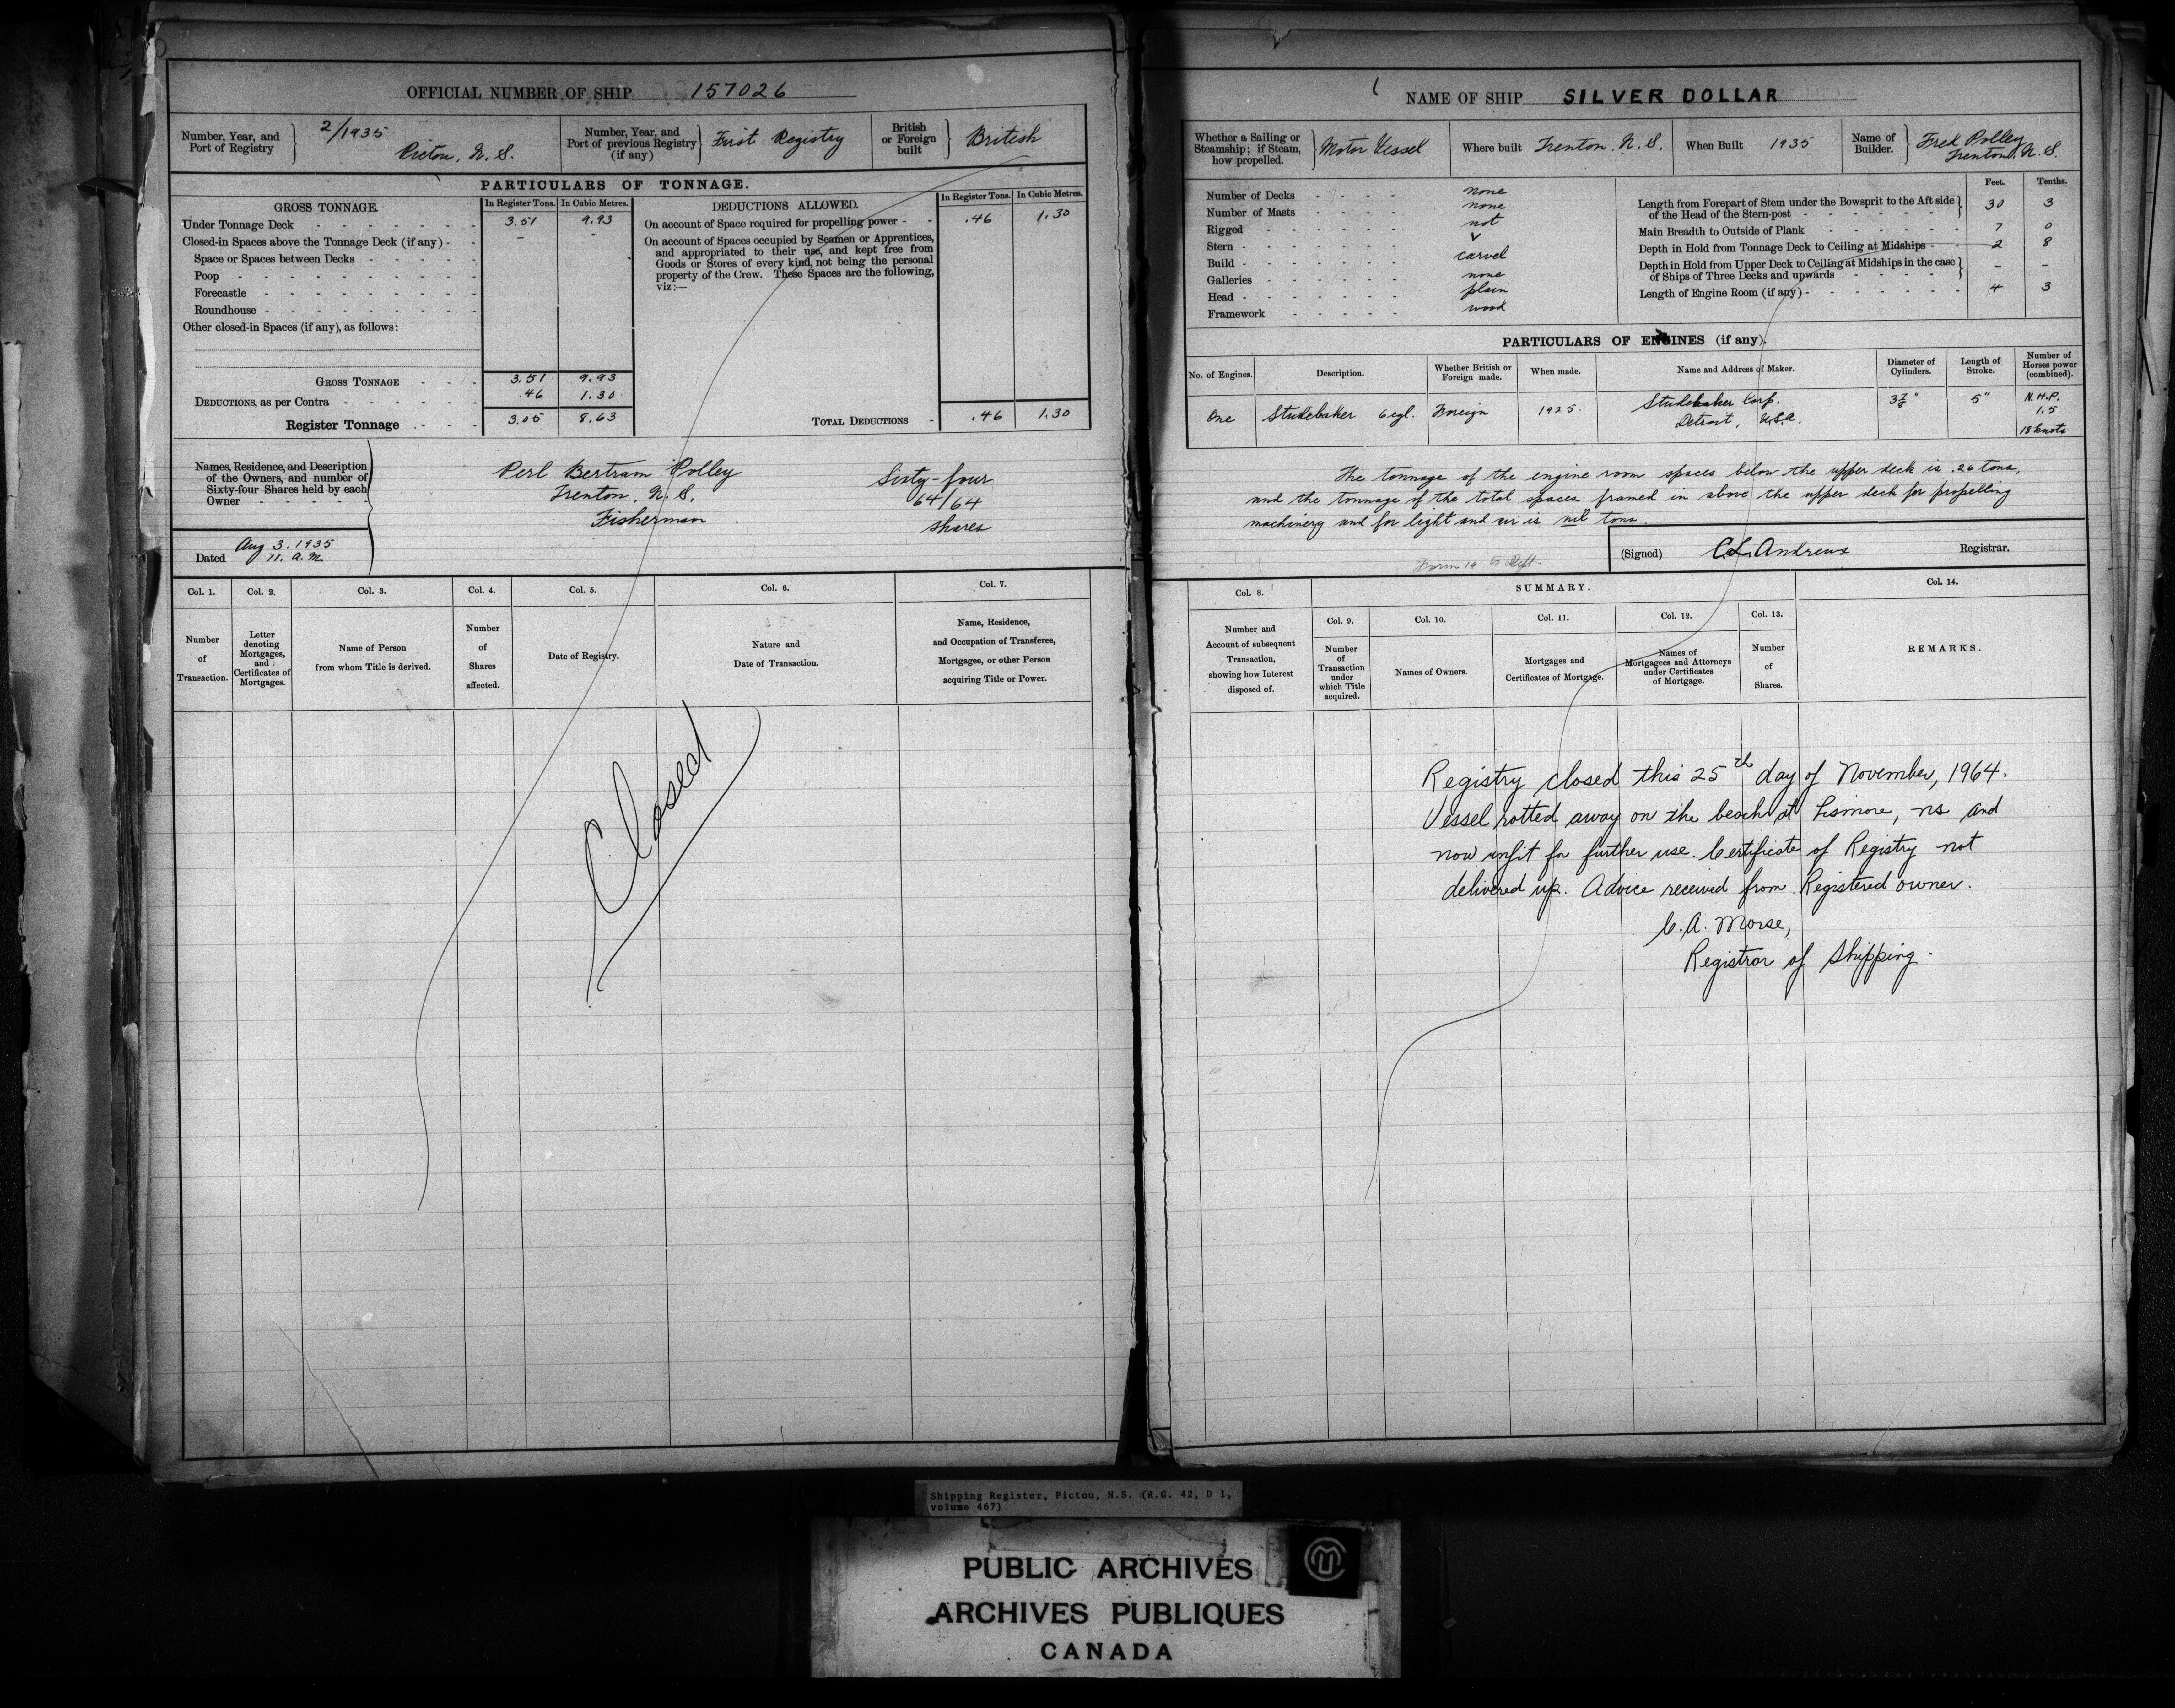 OFFICIAL NUMBER OF SHIP 157026
Number, Year, and Port of Registry 2/1935 Pictou, N.S.
Number, Year, and Port of previous Registry (if any) First Registry
British or Foreign built British
PARTICULARS OF TONNAGE.
GROSS TONNAGE. In Register Tons. In Cubic Metres.
Under Tonnage Deck 3.51 9.93
Closed-in Spaces above the Tonnage Deck (if any) - -
Space or Spaces between Decks
Poop
Forecastle
Roundhouse
Other closed-in Spaces (if any), as follows:
GROSS TONNAGE 3.51 9.93
DEDUCTIONS, as per Contra .46 1.30
Register Tonnage 3.05 8.63
DEDUCTIONS ALLOWED. In Register Tons. In Cubic Metres.
On account of Space required for propelling power .46 1.30
On account of Spaces occupied by Seamen or Apprentices,
and appropriated to their use, and kept free from
Goods or Stores of every kind, not being the personal
property of the Crew. These Spaces are the following,
viz:—
TOTAL DEDUCTIONS .46 1.30
Names, Residence, and Description
of the Owners, and number of
Sixty-four Shares held by each
Owner
Perl Bertram Polley
Trenton, N.S.
Fisherman
Sixty-four
64/64
shares
Dated Aug 3. 1935
11. a.m.
Col. 1. Number of Transaction.
Col. 2. Letter denoting Mortgages, and Certificates of Mortgages.
Col. 3. Name of Person from whom Title is derived.
Col. 4. Number of Shares affected.
Col. 5. Date of Registry.
Col. 6. Nature and Date of Transaction.
Col. 7. Name, Residence, and Occupation of Transferee, Mortgagee, or other Person acquiring Title or Power.
Closed
NAME OF SHIP SILVER DOLLAR
Whether a Sailing or Steamship; if Steam, how propelled. Motor Vessel
Where built Trenton, N.S.
When Built 1935
Name of Builder. Fred Polley
Trenton, N.S.
Number of Decks none
Number of Masts none
Rigged not
Stern V
Build carvel
Galleries none
Head plain
Framework wood
Feet. Tenths.
Length from Forepart of Stem under the Bowsprit to the Aft side of the Head of the Stern-post 30 3
Main Breadth to Outside of Plank 7 0
Depth in Hold from Tonnage Deck to Ceiling at Midships 2 8
Depth in Hold from Upper Deck to Ceiling at Midships in the case of Ships of Three Decks and upwards - -
Length of Engine Room (if any) 4 3
PARTICULARS OF ENGINES (if any).
No. of Engines. Description. Whether British or Foreign made. When made. Name and Address of Maker. Diameter of Cylinders. Length of Stroke. Number of Horses power (combined).
One Studebaker 6 cyl. Foreign 1925. Studebaker Corp. Detroit, U.S.A. 3 7/8" 5" N.H.P. 1.5 18 knots
The tonnage of the engine room spaces below the upper deck is .26 tons,
and the tonnage of the total spaces framed in above the upper deck for propelling
machinery and for light and air is nil tons.
Form 19 to Dept.
(Signed) C.L. Andrews Registrar.
Col. 8. Number and Account of subsequent Transaction, showing how Interest disposed of.
SUMMARY.
Col. 9. Number of Transaction under which Title acquired.
Col. 10. Names of Owners.
Col. 11. Mortgages and Certificates of Mortgage.
Col. 12. Names of Mortgagees and Attorneys under Certificates of Mortgage.
Col. 13. Number of Shares.
Col. 14. REMARKS.
Registry closed this 25th day of November, 1964.
Vessel rotted away on the beach at Lismore, NS and
now unfit for further use. Certificate of Registry not
delivered up. Advice received from Registered owner.
C.A. Morse,
Registrar of Shipping.
Shipping Register, Pictou, N.S. (R.G. 42, D 1,
volume 467)
PUBLIC ARCHIVES
ARCHIVES PUBLIQUES
CANADA